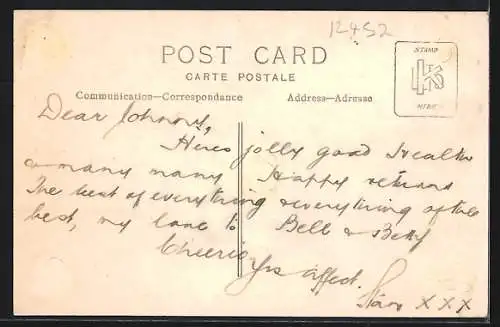 12452
POST CARD
CARTE POSTALE
STAMP
HERE
Communication—Correspondance
Address—Adresse
Dear Johnny,
Heres jolly good health
& many many Happy returns
The best of everything & everything of the
best, my love to Bell & Betty
Cheerio Yrs affect.
x x x